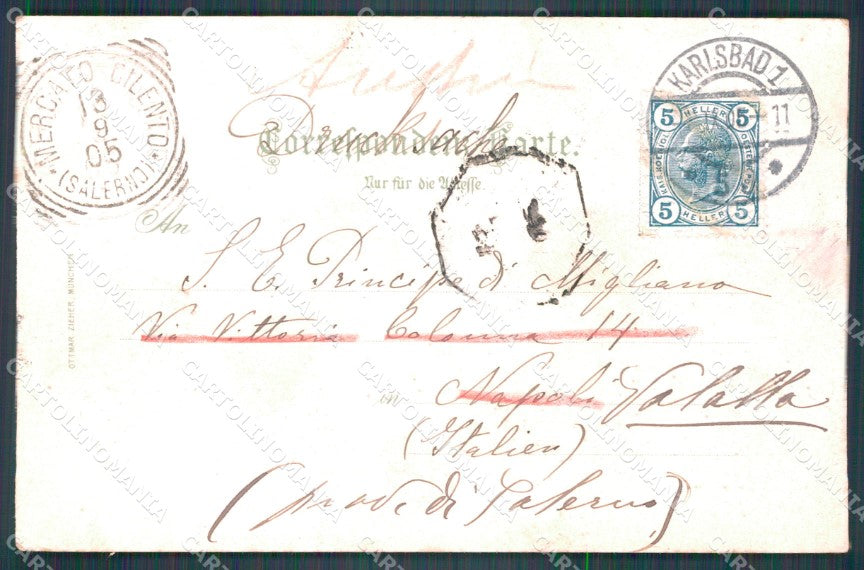 Austria
Drucksache
Correspondenz-Karte.
Nur für die Adresse.
An
S. E. Principe di Migliano
Via Vittoria Colonna 14
in Napoli
(Italien)
(prov. di Salerno)
MERCATO CILENTO
(SALERNO)
3
9
05
KARLSBAD 1
11
5 HELLER 5
5 HELLER 5
OTTMAR ZIEHER, MÜNCHEN
CARTOLINOMANIA